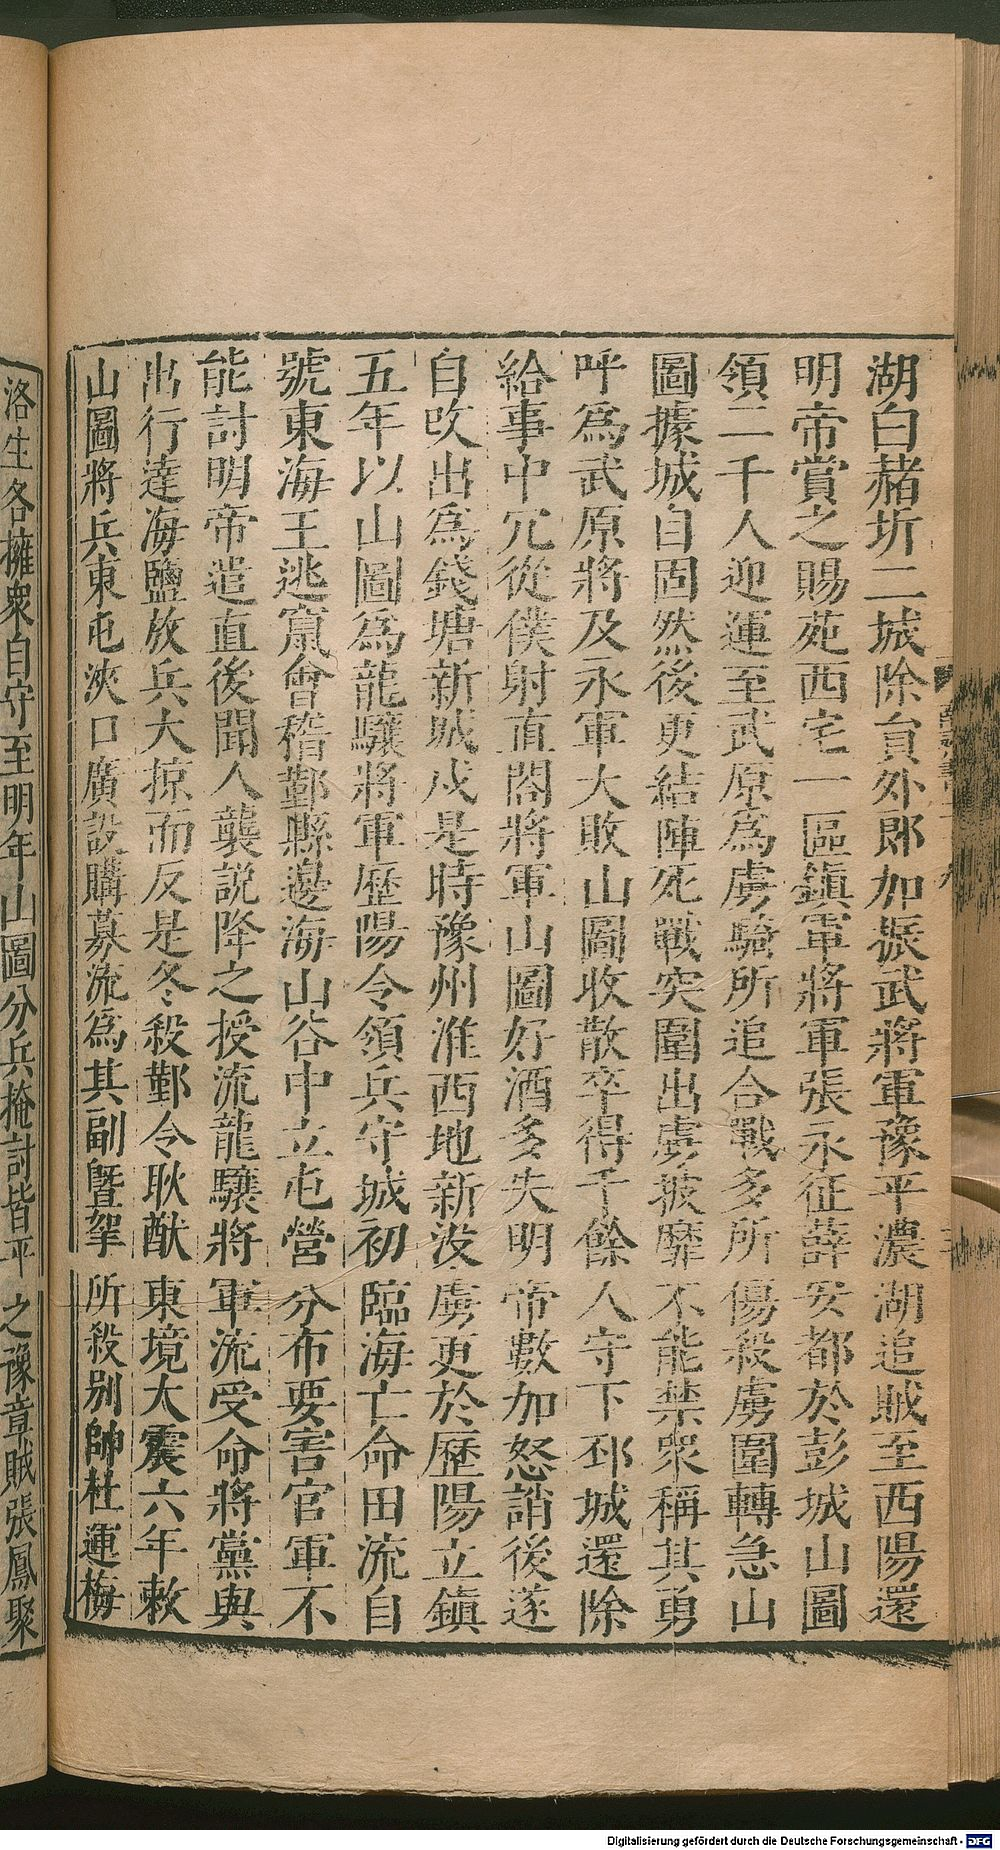 湖白赭圻二城除員外郎加振武將軍豫平濃湖追賊至西陽還
明帝賞之賜苑西宅一區鎮軍將軍張永征薛安都於彭城山圖
領二千人迎運至武原爲虜騎所追合戰多所傷殺虜圍轉急山
圖據城自固然後更結陣死戰突圍出虜披靡不能禁衆稱其勇
呼爲武原將及永軍大敗山圖收散卒得千餘人守下邳城還除
給事中冗從僕射直閤將軍山圖好酒多失明帝數加怒誚後遂
自攺出爲錢塘新城戍是時豫州淮西地新沒虜更於歷陽立鎮
五年以山圖爲龍驤將軍歷陽令領兵守城初臨海亡命田流自
號東海王逃竄會稽鄞縣邊海山谷中立屯營分布要害官軍不
能討明帝遣直後聞人襲説降之授流龍驤將軍流受命將黨與
出行達海鹽放兵大掠而反是冬殺鄞令耿猷東境大震六年敕
山圖將兵東屯浹口廣設購募流爲其副暨挐所殺别帥杜連梅
洛生各擁衆自守至明年山圖分兵掩討皆平之豫章賊張鳳聚
Digitalisierung gefördert durch die Deutsche Forschungsgemeinschaft - DFG